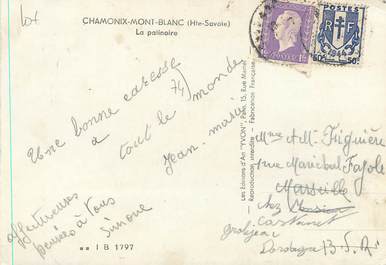 lot
CHAMONIX-MONT-BLANC (Hte-Savoie)
La patinoire
Une bonne caresse
à tout le monde
Jean-Marie
affectueuses
pensées à tous
Simone
(74)
■■ I B 1797
Les Editions d'Art "YVON", Paris, 15, Rue Martel
Reproduction interdite - Fabrication Française
POSTES
RF
50c 50c
Mme & M. Figuière
rue Maréchal Fayole
Marseille
chez
Castanet
Dordogne